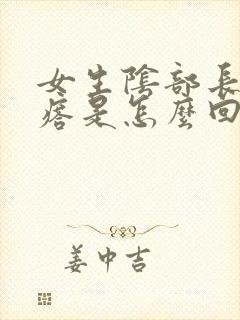 女生陰部長
痞是怎麼回
姜中吉